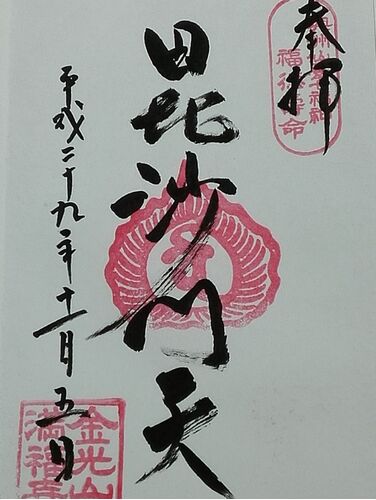 奉拝
福徳寿命
毘沙門天
平成二十九年十一月五日
金光山
満福寺